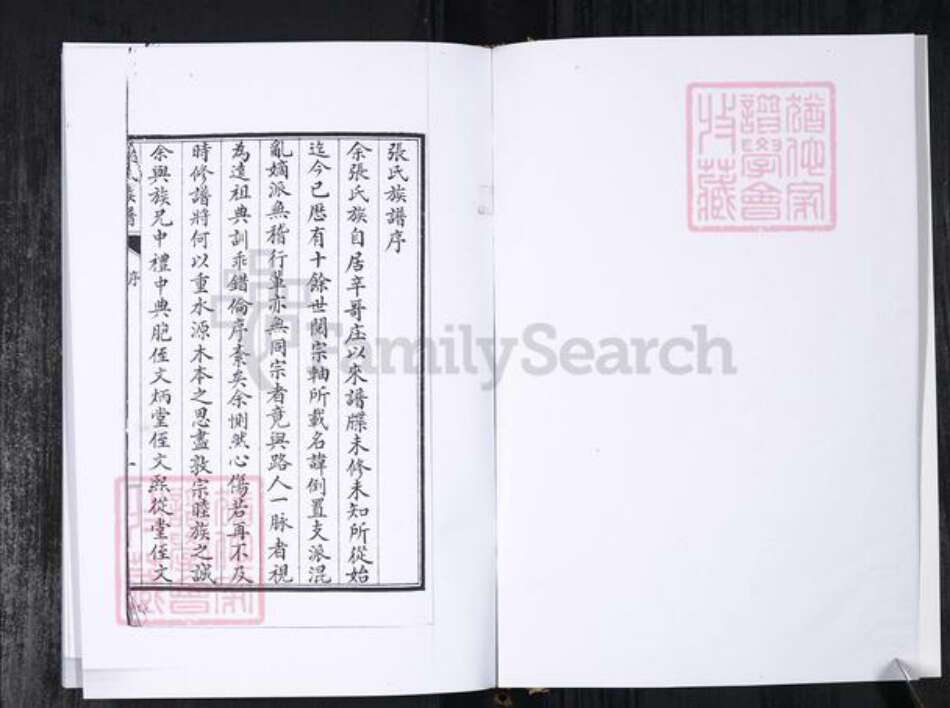 張氏族譜序
余張氏族自居辛哥庄以來譜牒未修未知所從始
迄今已歷有十餘世閱宗軸所載名諱倒置支派混
亂嫡派無稽行輩亦無同宗者竟與路人一脉者視
為遠祖典訓乖錯倫序紊矣余惻然心傷若再不及
時修譜將何以重水源木本之思盡敦宗睦族之誠
余與族兄中禮中典胞侄文炳堂侄文熙從堂侄文
氏族譜
序
一
FamilySearch